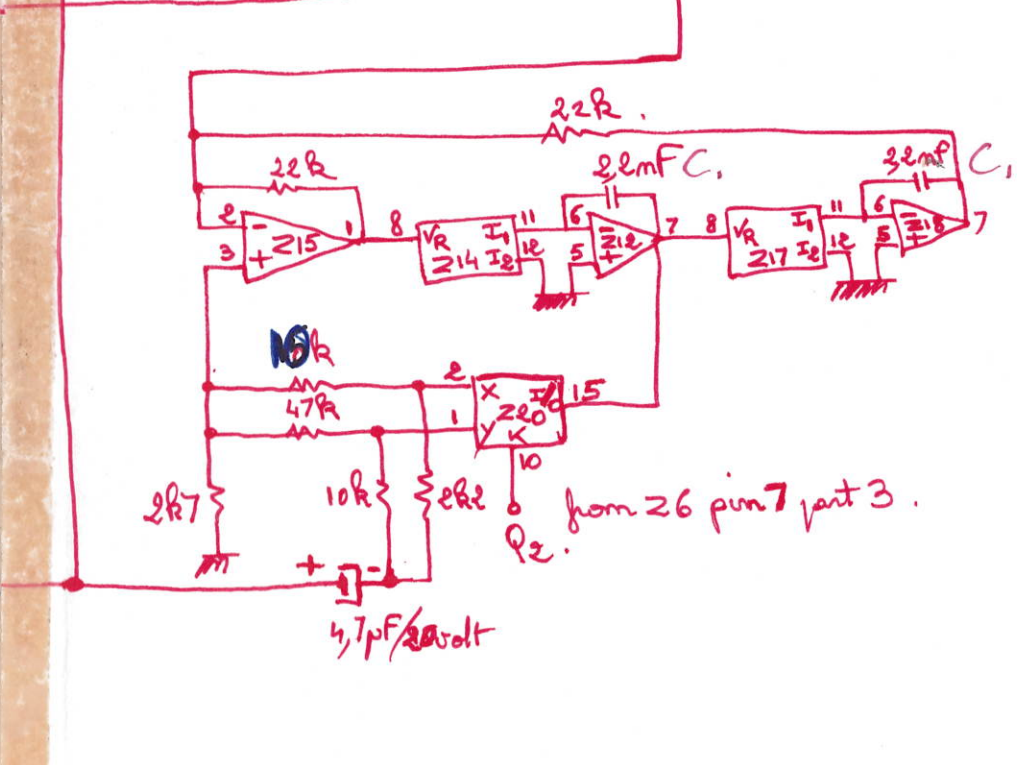 22k.
22k
2,2nF C.
2,2nf C.
2
3
- + Z15
1
8
VR I1 I2 Z14
11
12
6
5
- + Z12
7
8
VR I1 I2 Z17
11
12
6
5
- + Z18
7
10k
47k
2
1
X Y I/O Z20 K
15
10
2k7
10k
2k2
Q2.
from Z6 pin 7 part 3.
+ -
4,7µF/20volt